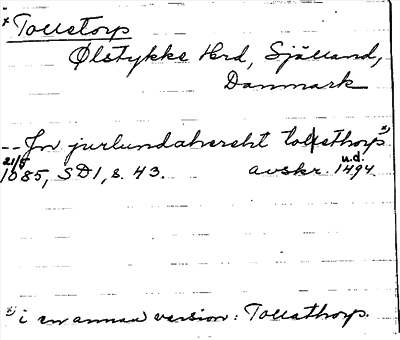 * Tolletorp
Ølstykke Hrd, Själland,
Danmark
-- Jn jurlundahereht tollesthorp x)
21/5
1085, SD1, s. 43. avskr. 1494 u.d.
x) i en annan version: Tollathorp.